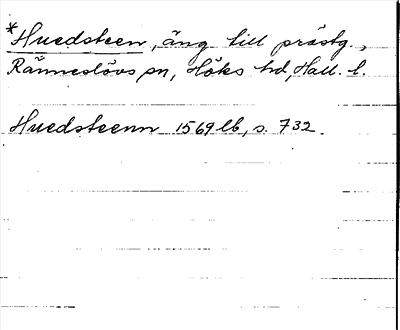 *Huedsteen, äng till prästg.,
Ränneslövs sn, Höks hd, Hall. l.
Huedsteenn 1569 lb, s. 732.